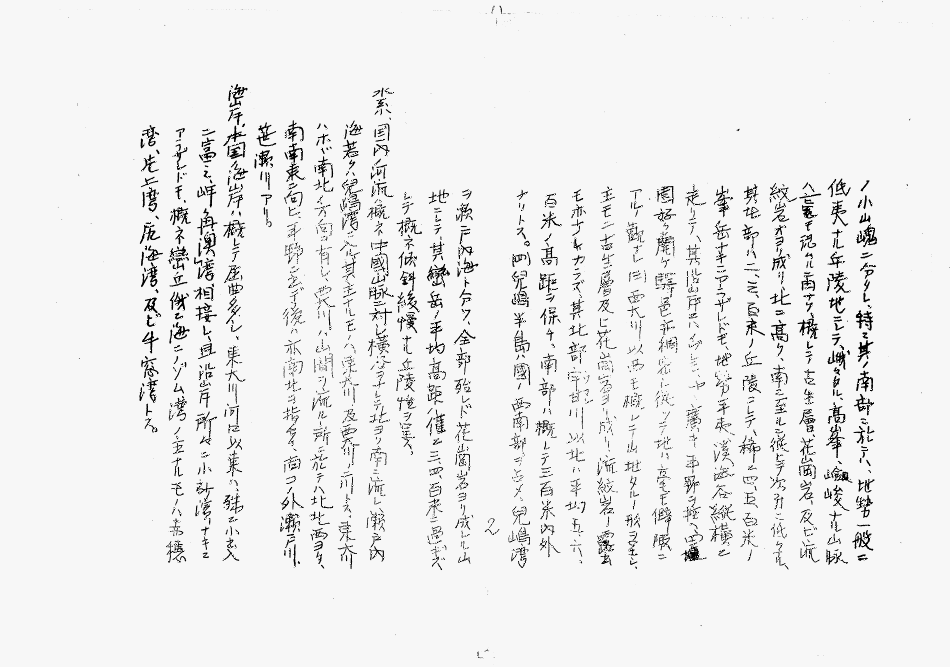 ノ小山塊ニ分タレ、特ニ其ノ南部ニ於テハ、地勢一般ニ
低夷ナル丘陵地ニシテ、峨々タル高峯、嶮峻ナル山脈
ハ 概シテ古生層、花崗岩、及ビ流
紋岩ヨリ成リ、北ニ高ク、南ニ至ルニ従ヒテ次第ニ低
其北部ハ二、三、百米ノ丘陵ニシテ、稀ニ四、五、百米ノ
峯岳ナキニアラザレドモ、地勢平夷、渓谷縦横ニ
走リテ、其沿岸ニハ 廣キ平野ヲ
ニ従ツテ地ハ毫モ僻陬ニ
アルノ觀ナシ 西大川以西モ概シテ山地タルノ形ヲ呈シ、
主モニ古生層及ビ花崗岩ヨリ成リ、流紋岩ノ露出
モ亦ナキカラズ、其北部 宇甘川以北ハ平均五、六、
百米ノ高距ヲ保チ、南部ハ概シテ三百米内外
ナリトス。 兒嶋半島ハ國ノ西南部ヲ占メ、兒嶋湾
2
ヲ瀬戸内海ト分ツ、全部殆レド花崗岩ヨリ成レル山
地ニシテ、其巒岳ノ平均高距ハ僅ニ三、四、百米ニ過ギズ
シテ概ネ傾斜緩慢ナル丘陵性ヲ呈ス、
水系、国内ノ河流ハ概ネ中國山脈ニ対シ横谷ヲナシテ北ヨリ南ニ流レ、瀬戸内
海若クハ兒嶋湾ニ入ル、其主ナルモノハ、東大川及西大川ノ二川トス、東大川
ハホボ南北ノ方向ヲ有シ、西大川ハ山間ヲ流ルル所ニ於テハ北北西ヨリ、
南南東ニ向ヒ、平野ニ出デテ後ハ亦南北ヲ指ス、コノ外瀬戸川、
笹瀬川アリ。
海岸、本国ノ海岸ハ概シテ屈曲多シ、東大川河口以東ハ、殊ニ小出入
ニ富ミ、岬角澳湾相接シ、且沿岸所々ニ小砂濱ナキニ
アラザレドモ、概ネ巒丘俄ニ海ニノゾム、湾ノ主ナルモノハ
湾、片上湾、尻海湾、及ビ牛窓湾トス。